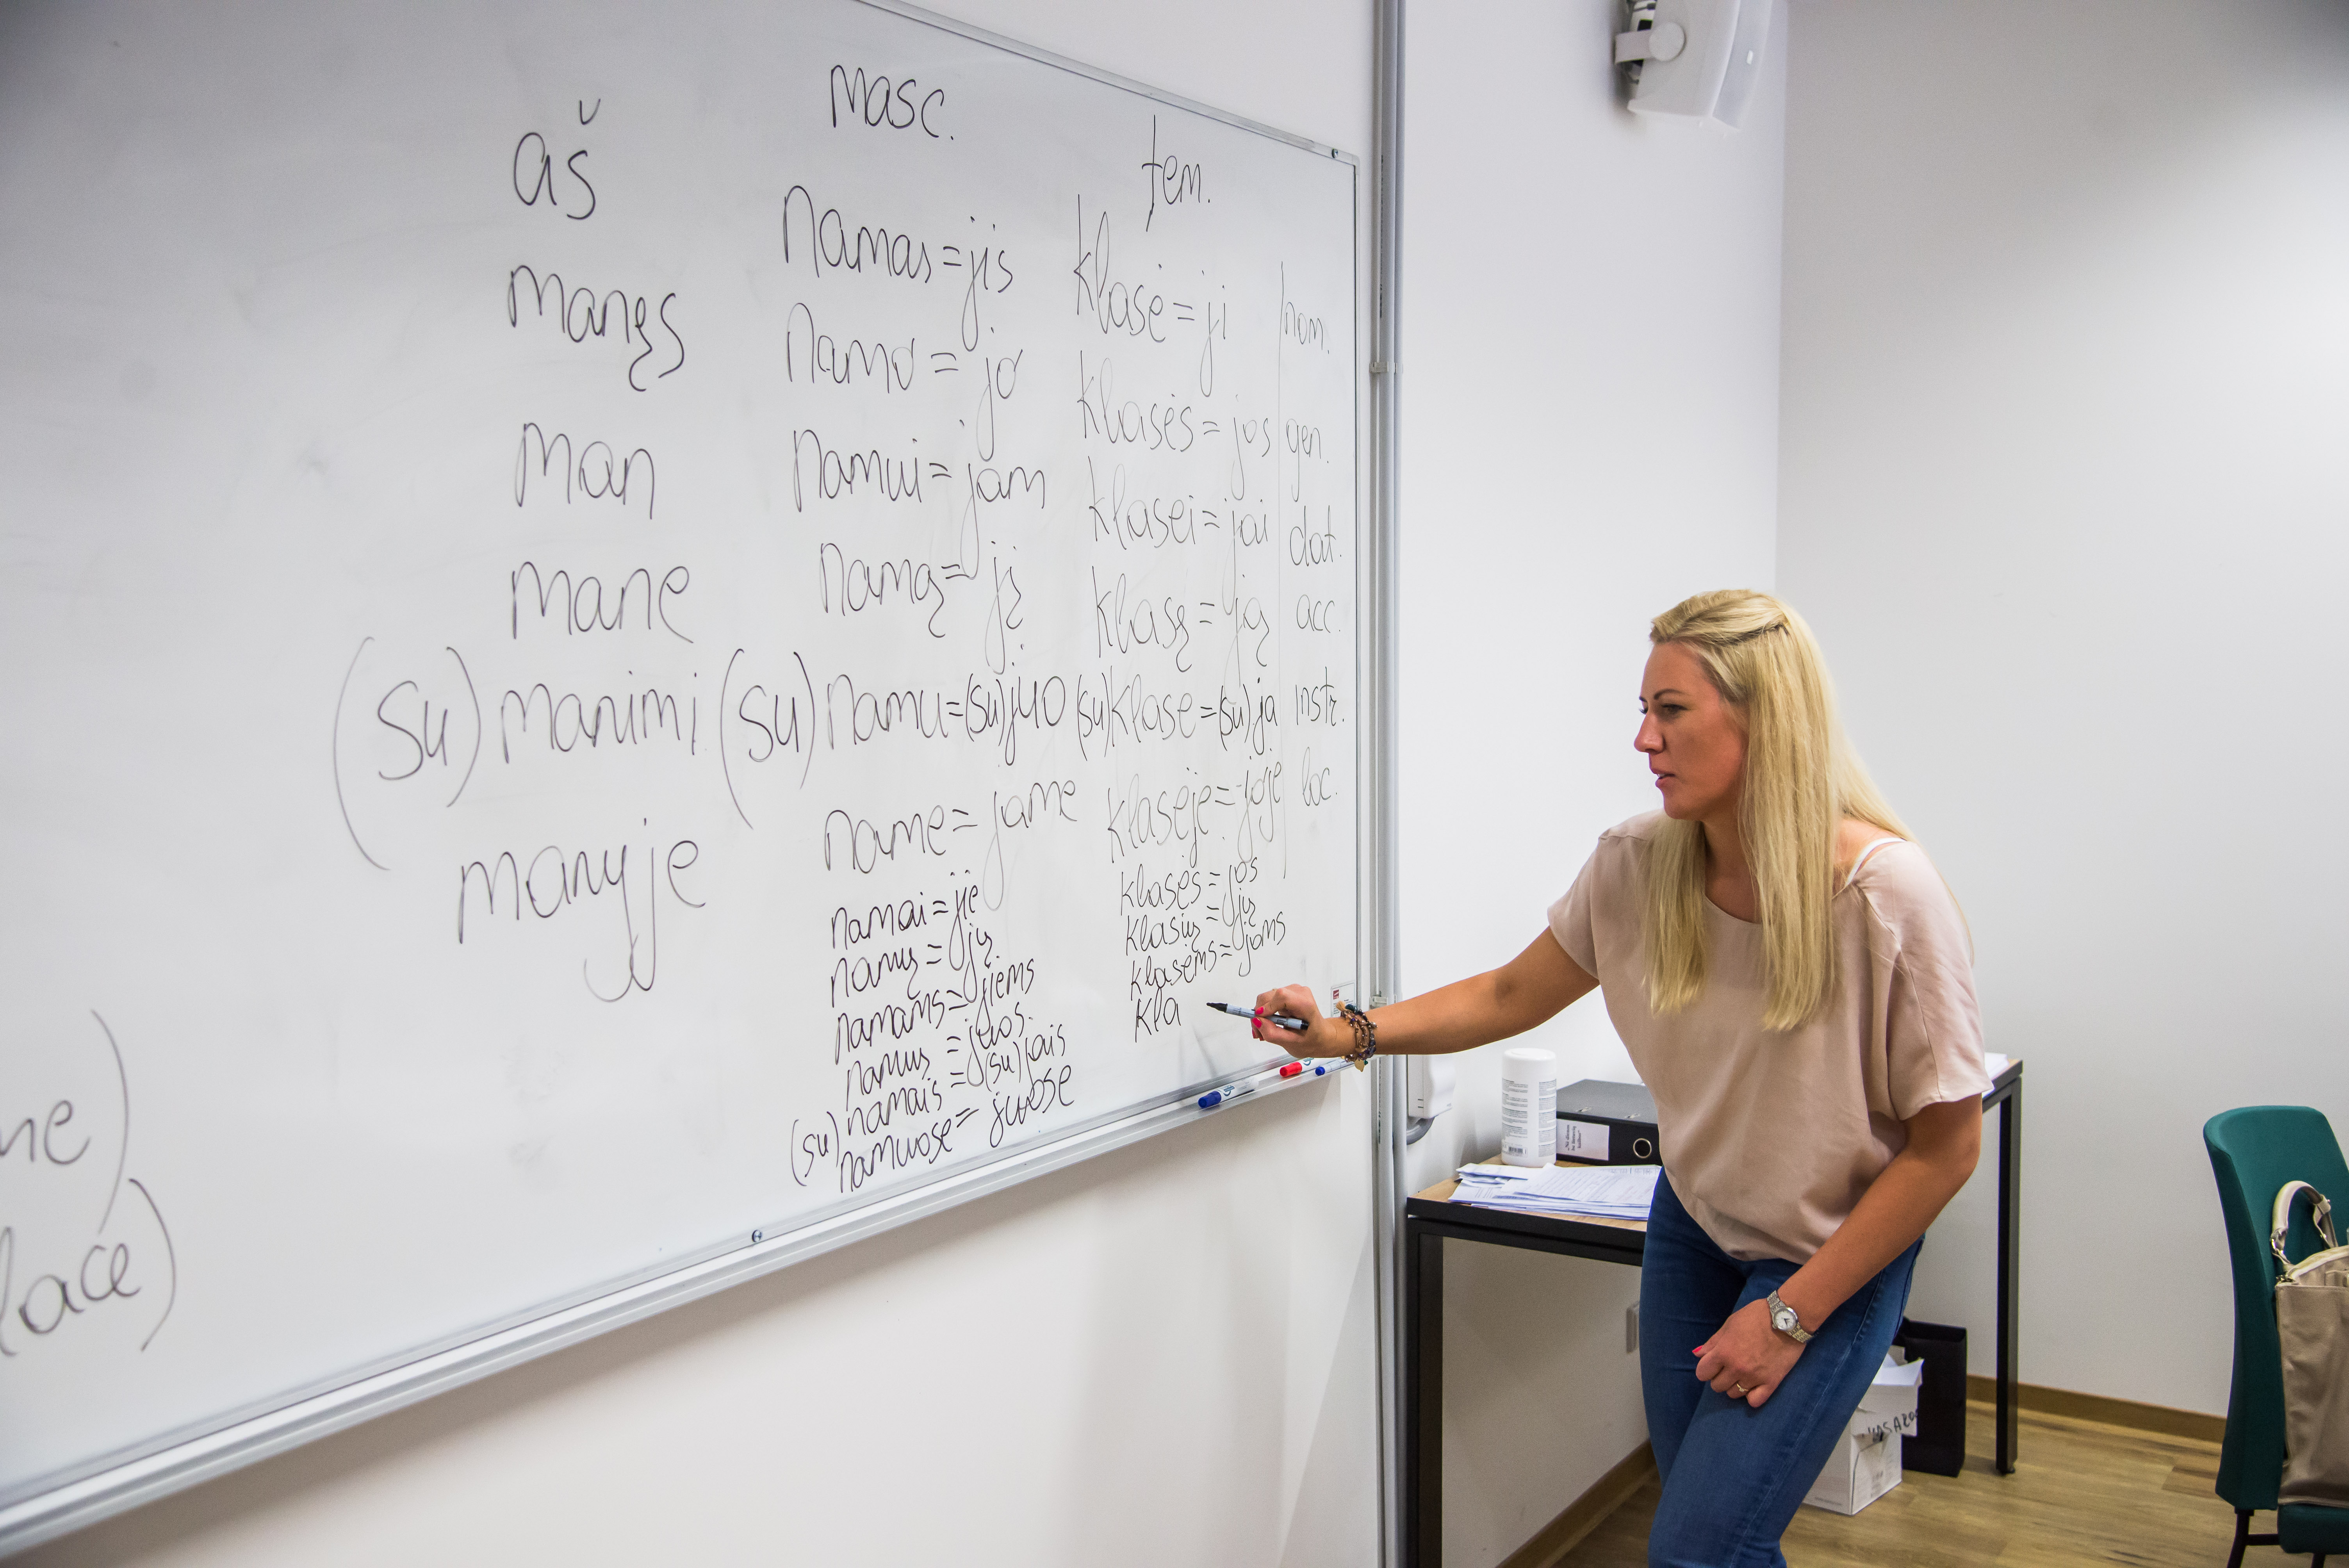 masc.
fem.
aš namas = jis klasė = ji nom.
manęs namo = jo klasės = jos gen.
man namui = jam klasei = jai dat.
mane namą = jį klasę = ją acc.
(su) manimi (su) namu = (su) juo (su) klase = (su) ja instr.
manyje name = jame klasėje = joje loc.
namai = jie klasės = jos
namų = jų klasių = jų
namams = jiems klasėms = joms
namus = juos kla
(su) namais = (su) jais
namuose = juose
ne)
lace)